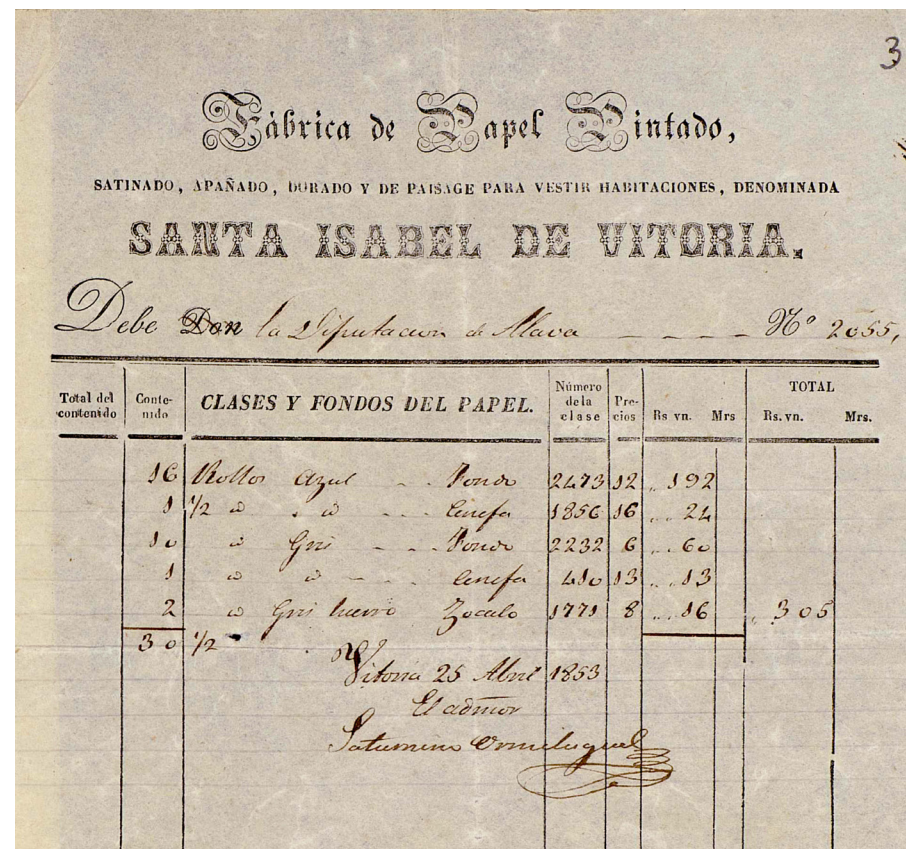 3
Fábrica de Papel Pintado,
SATINADO, APAÑADO, DORADO Y DE PAISAGE PARA VESTIR HABITACIONES, DENOMINADA
SANTA ISABEL DE VITORIA.
Debe Don la Diputacion de Alava - - - - Nº 2055,
Total del contenido Conte-nido CLASES Y FONDOS DEL PAPEL. Número de la clase Pre-cios Rs vn. Mrs TOTAL Rs. vn. Mrs.
16 Rollos Azul - - Fondo 2473 12 192
1 1/2 id . id - - - Cenefa 1856 16 24
10 id Gris - - - Fondo 2232 6 60
1 id id - - - Cenefa 410 13 13
2 id Gris hierro Zocalo 1771 8 16 305
30 1/2
Vitoria 25 Abril 1853
El admor
Saturnino Ormilugue